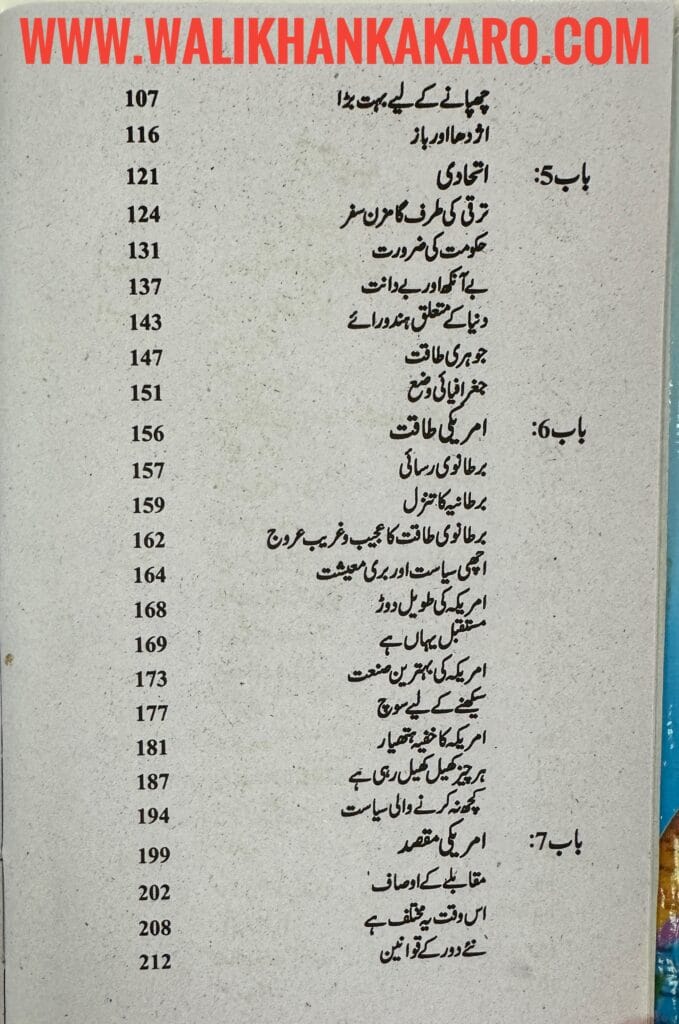 WWW.WALIKHANKAKARO.COM
چھپانے کے لیے بہت بڑا 107
اژدھا اور باز 116
باب 5: اتحادی 121
ترقی کی طرف گامزن سفر 124
حکومت کی ضرورت 131
بے آنکھ اور بے دانت 137
دنیا کے متعلق ہندو رائے 143
جوہری طاقت 147
جغرافیائی وضع 151
باب 6: امریکی طاقت 156
برطانوی رسائی 157
برطانیہ کا تنزل 159
برطانوی طاقت کا عجیب و غریب عروج 162
اچھی سیاست اور بری معیشت 164
امریکہ کی طویل دوڑ 168
مستقبل یہاں ہے 169
امریکہ کی بہترین صنعت 173
سیکھنے کے لیے سوچ 177
امریکہ کا خفیہ ہتھیار 181
ہر چیز کھیل کھیل رہی ہے 187
کچھ نہ کرنے والی سیاست 194
باب 7: امریکی مقصد 199
مقابلے کے اوصاف 202
اس وقت یہ مختلف ہے 208
نئے دور کے قوانین 212